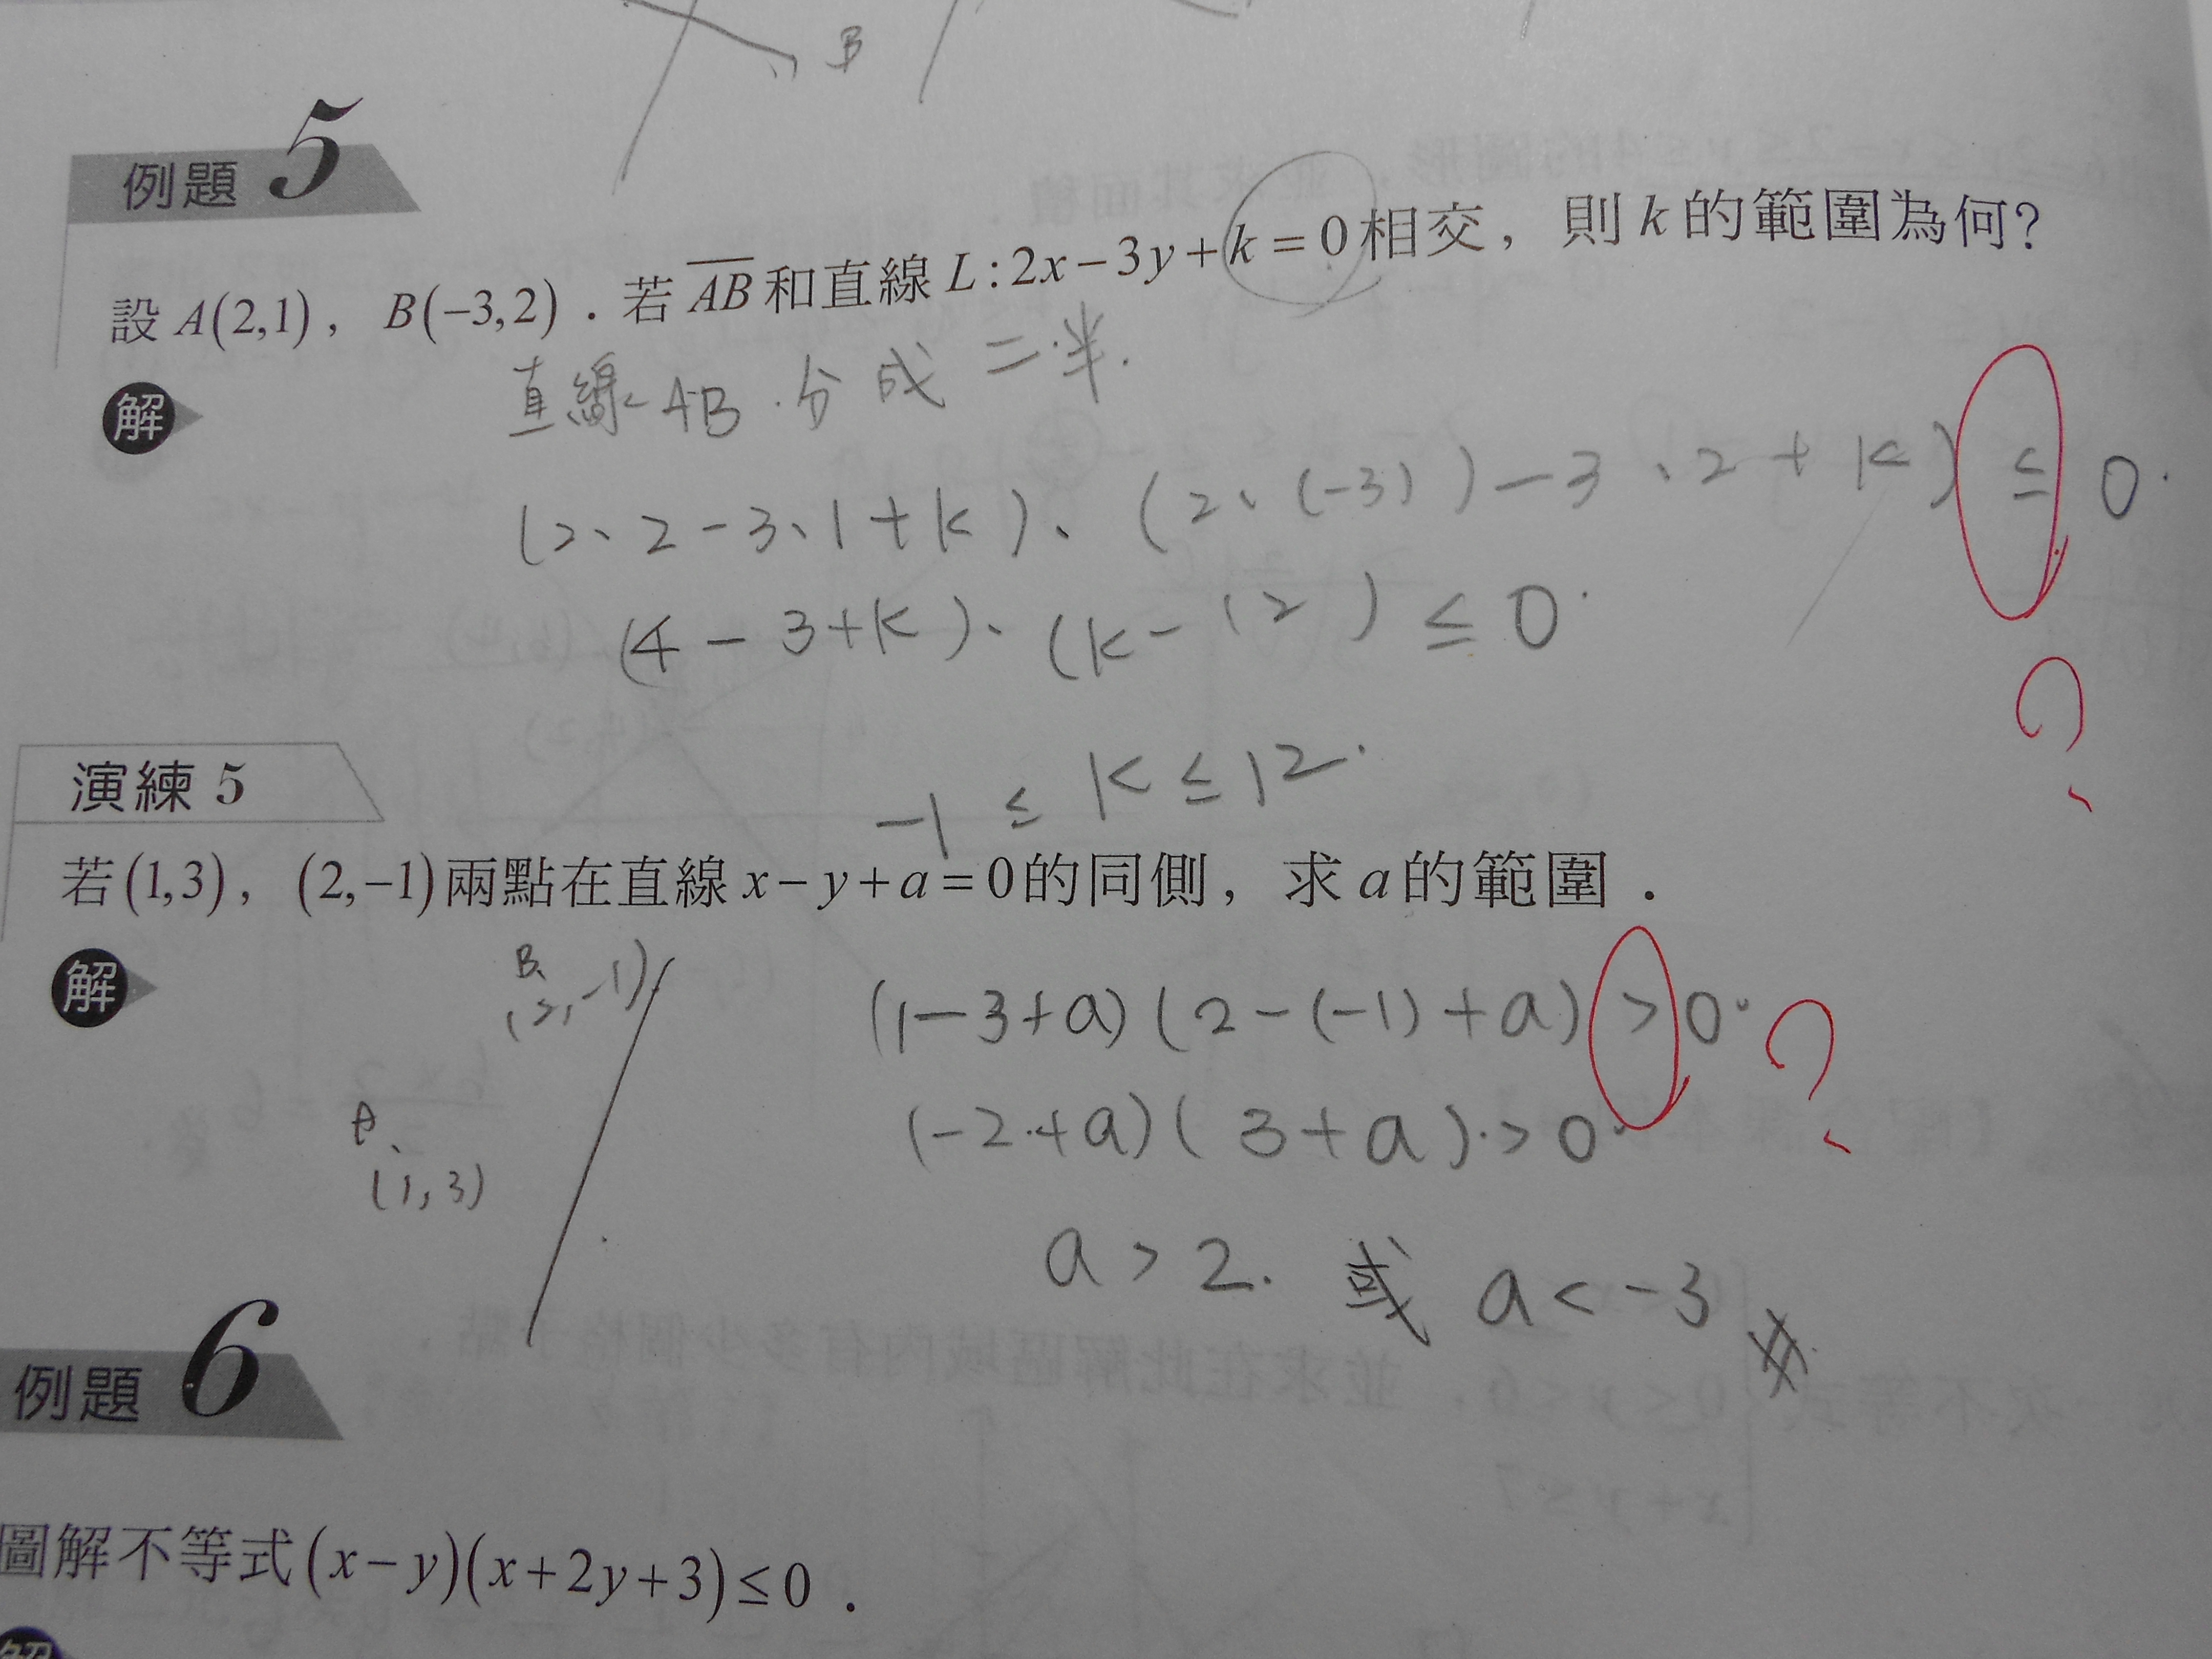 B
例題 5
設 A(2,1) ， B(−3,2) ．若 AB 和直線 L : 2x−3y+k = 0 相交，則 k 的範圍為何?
解
直線 AB 分成 二半.
(2、2-3、1+k)、(2、(-3))-3、2+k) ≤ 0.
(4-3+k)、(k-12) ≤ 0.
?
-1 ≤ k ≤ 12.
演練 5
若 (1,3) ， (2,−1) 兩點在直線 x−y+a=0 的同側，求 a 的範圍．
解
B
(2,-1)
A
(1,3)
(1-3+a)(2-(-1)+a) > 0 ?
(-2+a)(3+a) > 0
a > 2. 或 a < -3 #
例題 6
圖解不等式 (x−y)(x+2y+3) ≤ 0 ．
解